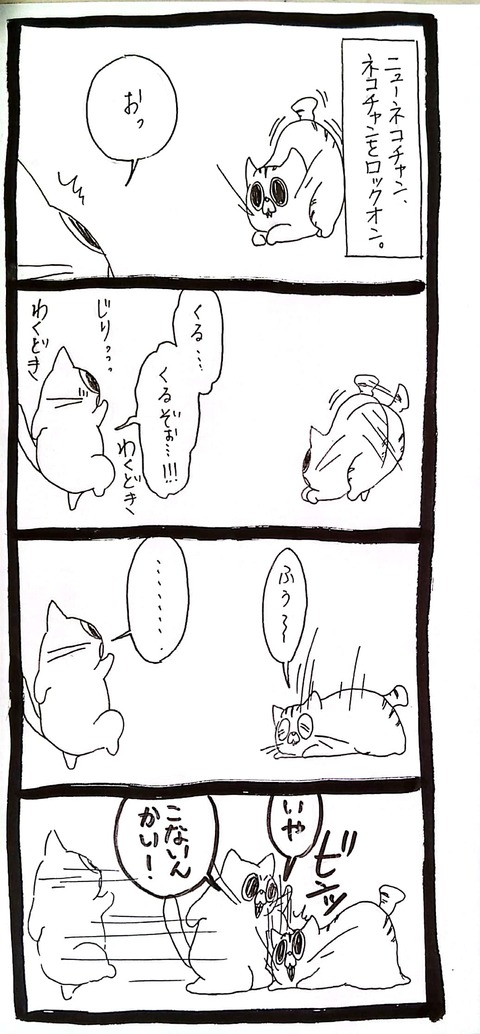 ニューネコチャン、
ネコチャンをロックオン。
おっ
くる…
くるぞぉ…!!!
じりっっっ
わくどき
わくどき
ふぅ〜
………
ビシッ
いや
こないん
かい!